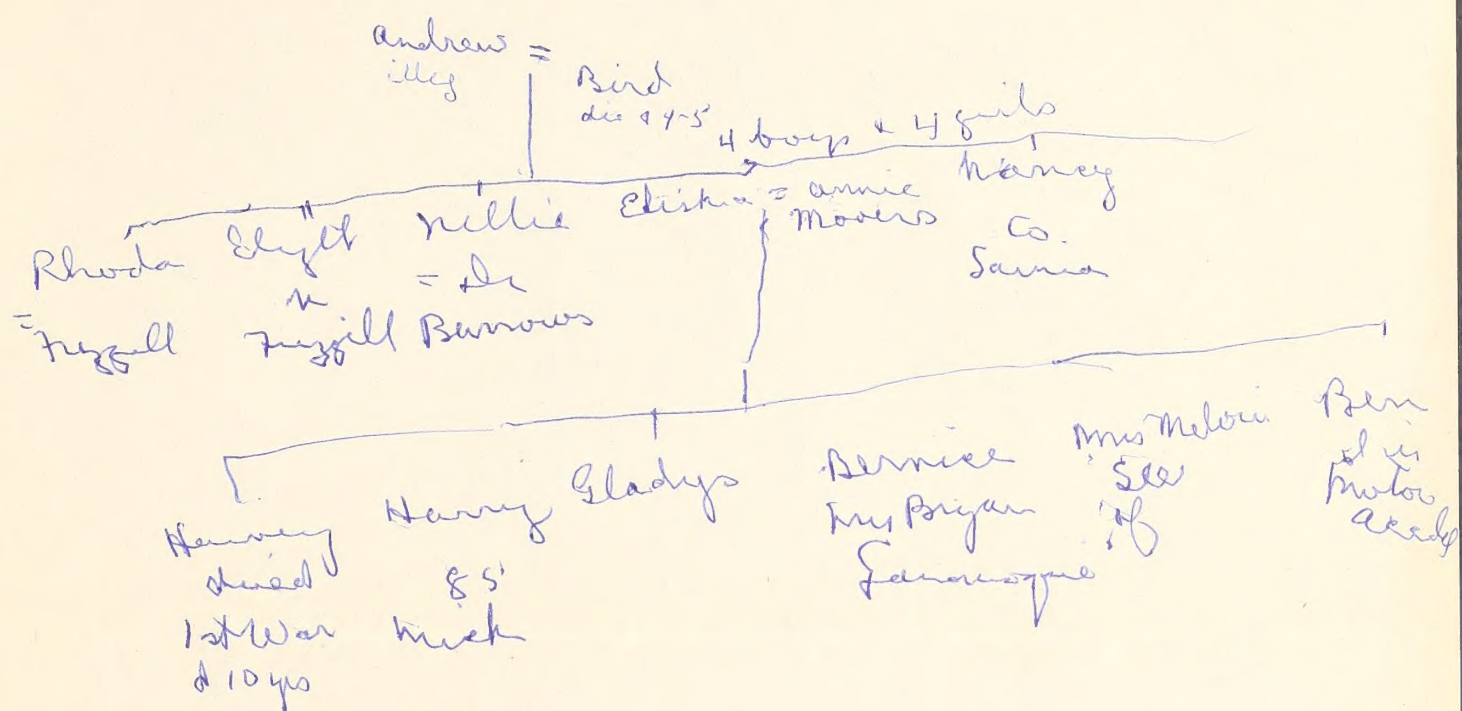 Andrew =
illeg
Bird
die 4-5
4 boys & 4 girls
Rhoda
=
Frizzell
Frizzell
Nellie
= Dr
Burrows
Elisha = Annie
Movers
Nancy
Co.
Sarnia
Harvey
died
1st War
10 yrs
Harry
85
Mich
Gladys
Bernice
Mrs Bryan
Gananoque
Mrs Melvin
See
of
Ben
d in
Motor
Accdt